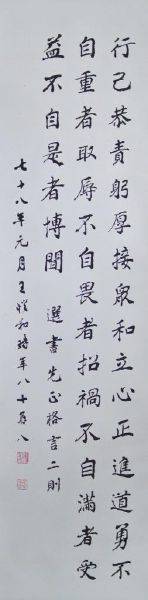 行己恭責躬厚接眾和立心正進道勇不
自重者取辱不自畏者招禍不自滿者受
益不自是者博聞 選書先正格言二則
七十八年元月王愷和時年八十有八